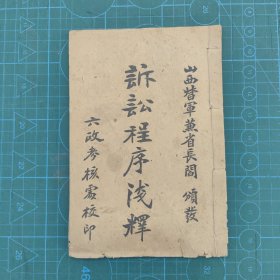 山西督軍兼省長閻 頒發
訴訟程序淺釋
六政參核處校印